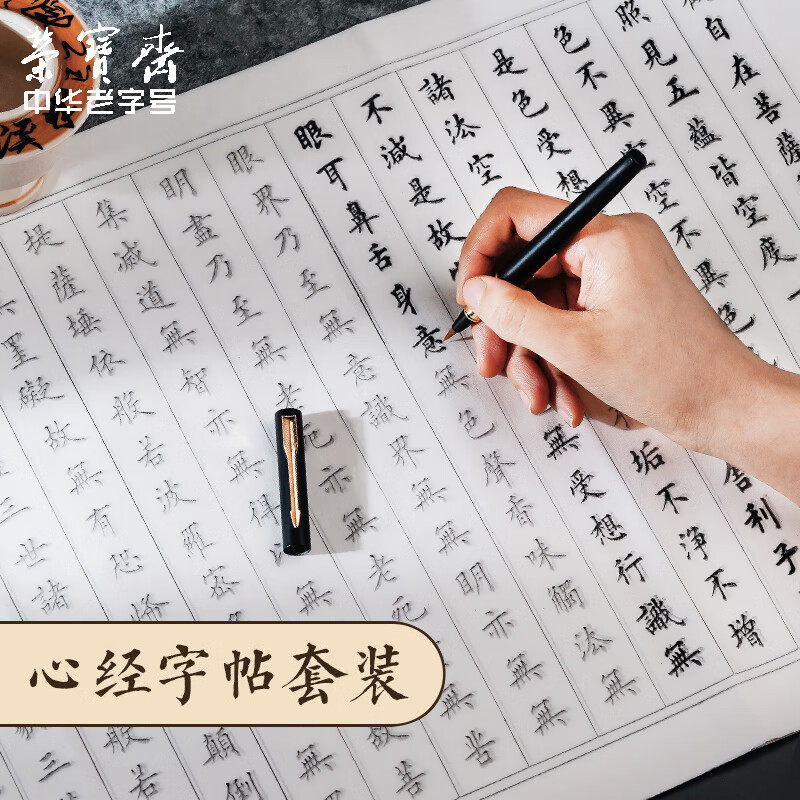 榮寶齋
中华老字号
自在菩薩
照見五蘊皆空度一
色不異空空不異色
是色受想
舍利子
諸法空
垢不淨不增
不減是故
無受想行識無
眼耳鼻舌身意無色聲香味觸法無
眼界乃至無意識界無無明亦無
明盡乃至無老死亦無老死
無苦
集滅道無智亦無得
無
故菩
提薩埵依般若波羅蜜
無罣礙故無有恐怖
顛倒
三世諸
般若
三
心经字帖套装